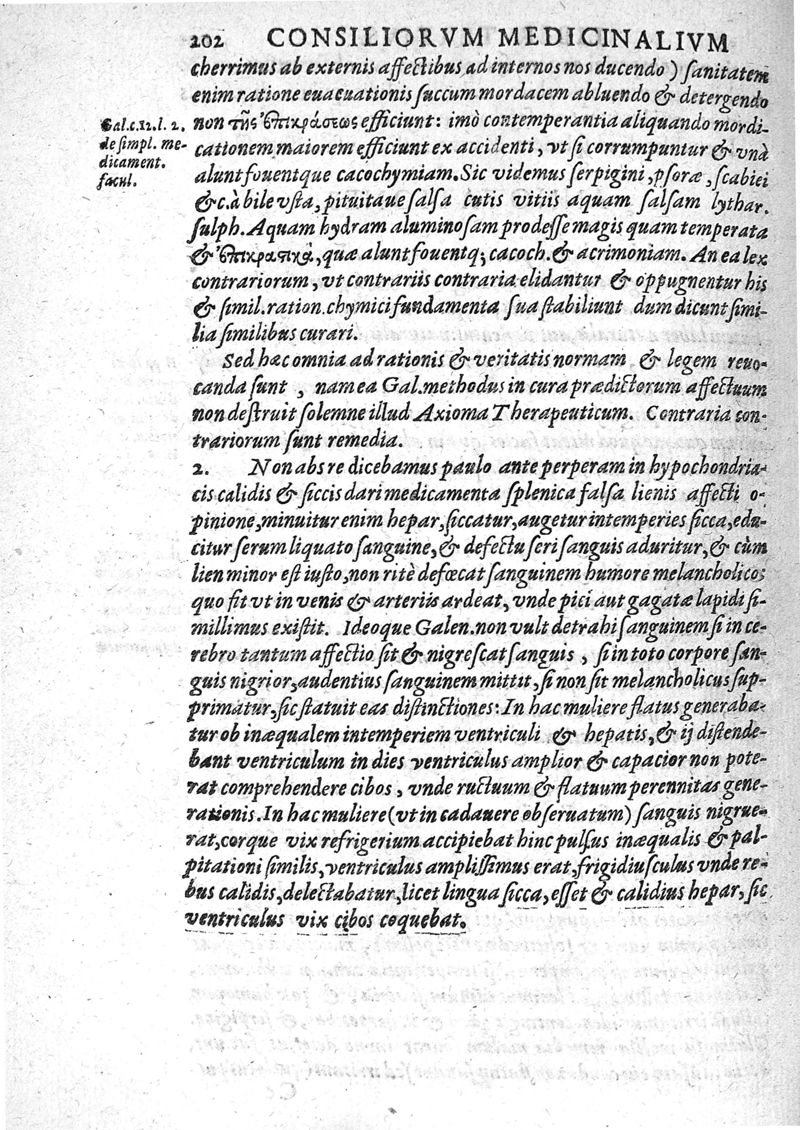 202 CONSILIORVM MEDICINALIVM
cherrimus ab externis affectibus ad internos nos ducendo) ſanitatem
enim ratione euacuationis ſuccum mordacem abluendo & detergendo
Gal.c.12.l. 2.
de ſimpl. me-
dicament.
facul.
non τῆς ἐπικράσεως efficiunt: imò contemperantia aliquando mordi-
cationem maiorem efficiunt ex accidenti, vt ſi corrumpuntur & vnà
alunt fouentque cacochymiam. Sic videmus ſerpigini, pſoræ, ſcabiei
&c. à bile vſta, pituitaue ſalſa cutis vitiis aquam ſalſam lythar.
ſulph. Aquam hydram aluminoſam prodeſſe magis quam temperata
& ἐπικρατικὰ, quæ alunt fouentq; cacoch. & acrimoniam. An ea lex
contrariorum, vt contrariis contraria elidantur & oppugnentur his
& ſimil. ration. chymici fundamenta ſua ſtabiliunt dum dicunt ſimi-
lia ſimilibus curari.
Sed hæc omnia ad rationis & veritatis normam & legem reuo-
canda ſunt, nam ea Gal. methodus in cura prædictorum affectuum
non deſtruit ſolemne illud Axioma Therapeuticum. Contraria con-
trariorum ſunt remedia.
2. Non abs re dicebamus paulo ante perperam in hypochondria-
cis calidis & ſiccis dari medicamenta ſplenica falſa lienis affecti o-
pinione, minuitur enim hepar, ſiccatur, augetur intemperies ſicca, edu-
citur ſerum liquato ſanguine, & defectu ſeri ſanguis aduritur, & cùm
lien minor eſt iuſto, non ritè defœcat ſanguinem humore melancholico;
quo fit vt in venis & arteriis ardeat, vnde pici aut gagatæ lapidi ſi-
millimus exiſtit. Ideoque Galen. non vult detrahi ſanguinem ſi in ce-
rebro tantum affectio ſit & nigreſcat ſanguis, ſi in toto corpore ſan-
guis nigrior, audentius ſanguinem mittit, ſi non ſit melancholicus ſup-
primatur, ſic ſtatuit eas diſtinctiones: In hac muliere flatus generaba-
tur ob inæqualem intemperiem ventriculi & hepatis, & ij diſtende-
bant ventriculum in dies ventriculus amplior & capacior non pote-
rat comprehendere cibos, vnde ructuum & flatuum perennitas gene-
rationis. In hac muliere (vt in cadauere obſeruatum) ſanguis nigrue-
rat, corque vix refrigerium accipiebat hinc pulſus inæqualis & pal-
pitationi ſimilis, ventriculus ampliſſimus erat, frigidiuſculus vnde re-
bus calidis, delectabatur, licet lingua ſicca, eſſet & calidius hepar, ſic
ventriculus vix cibos coquebat.